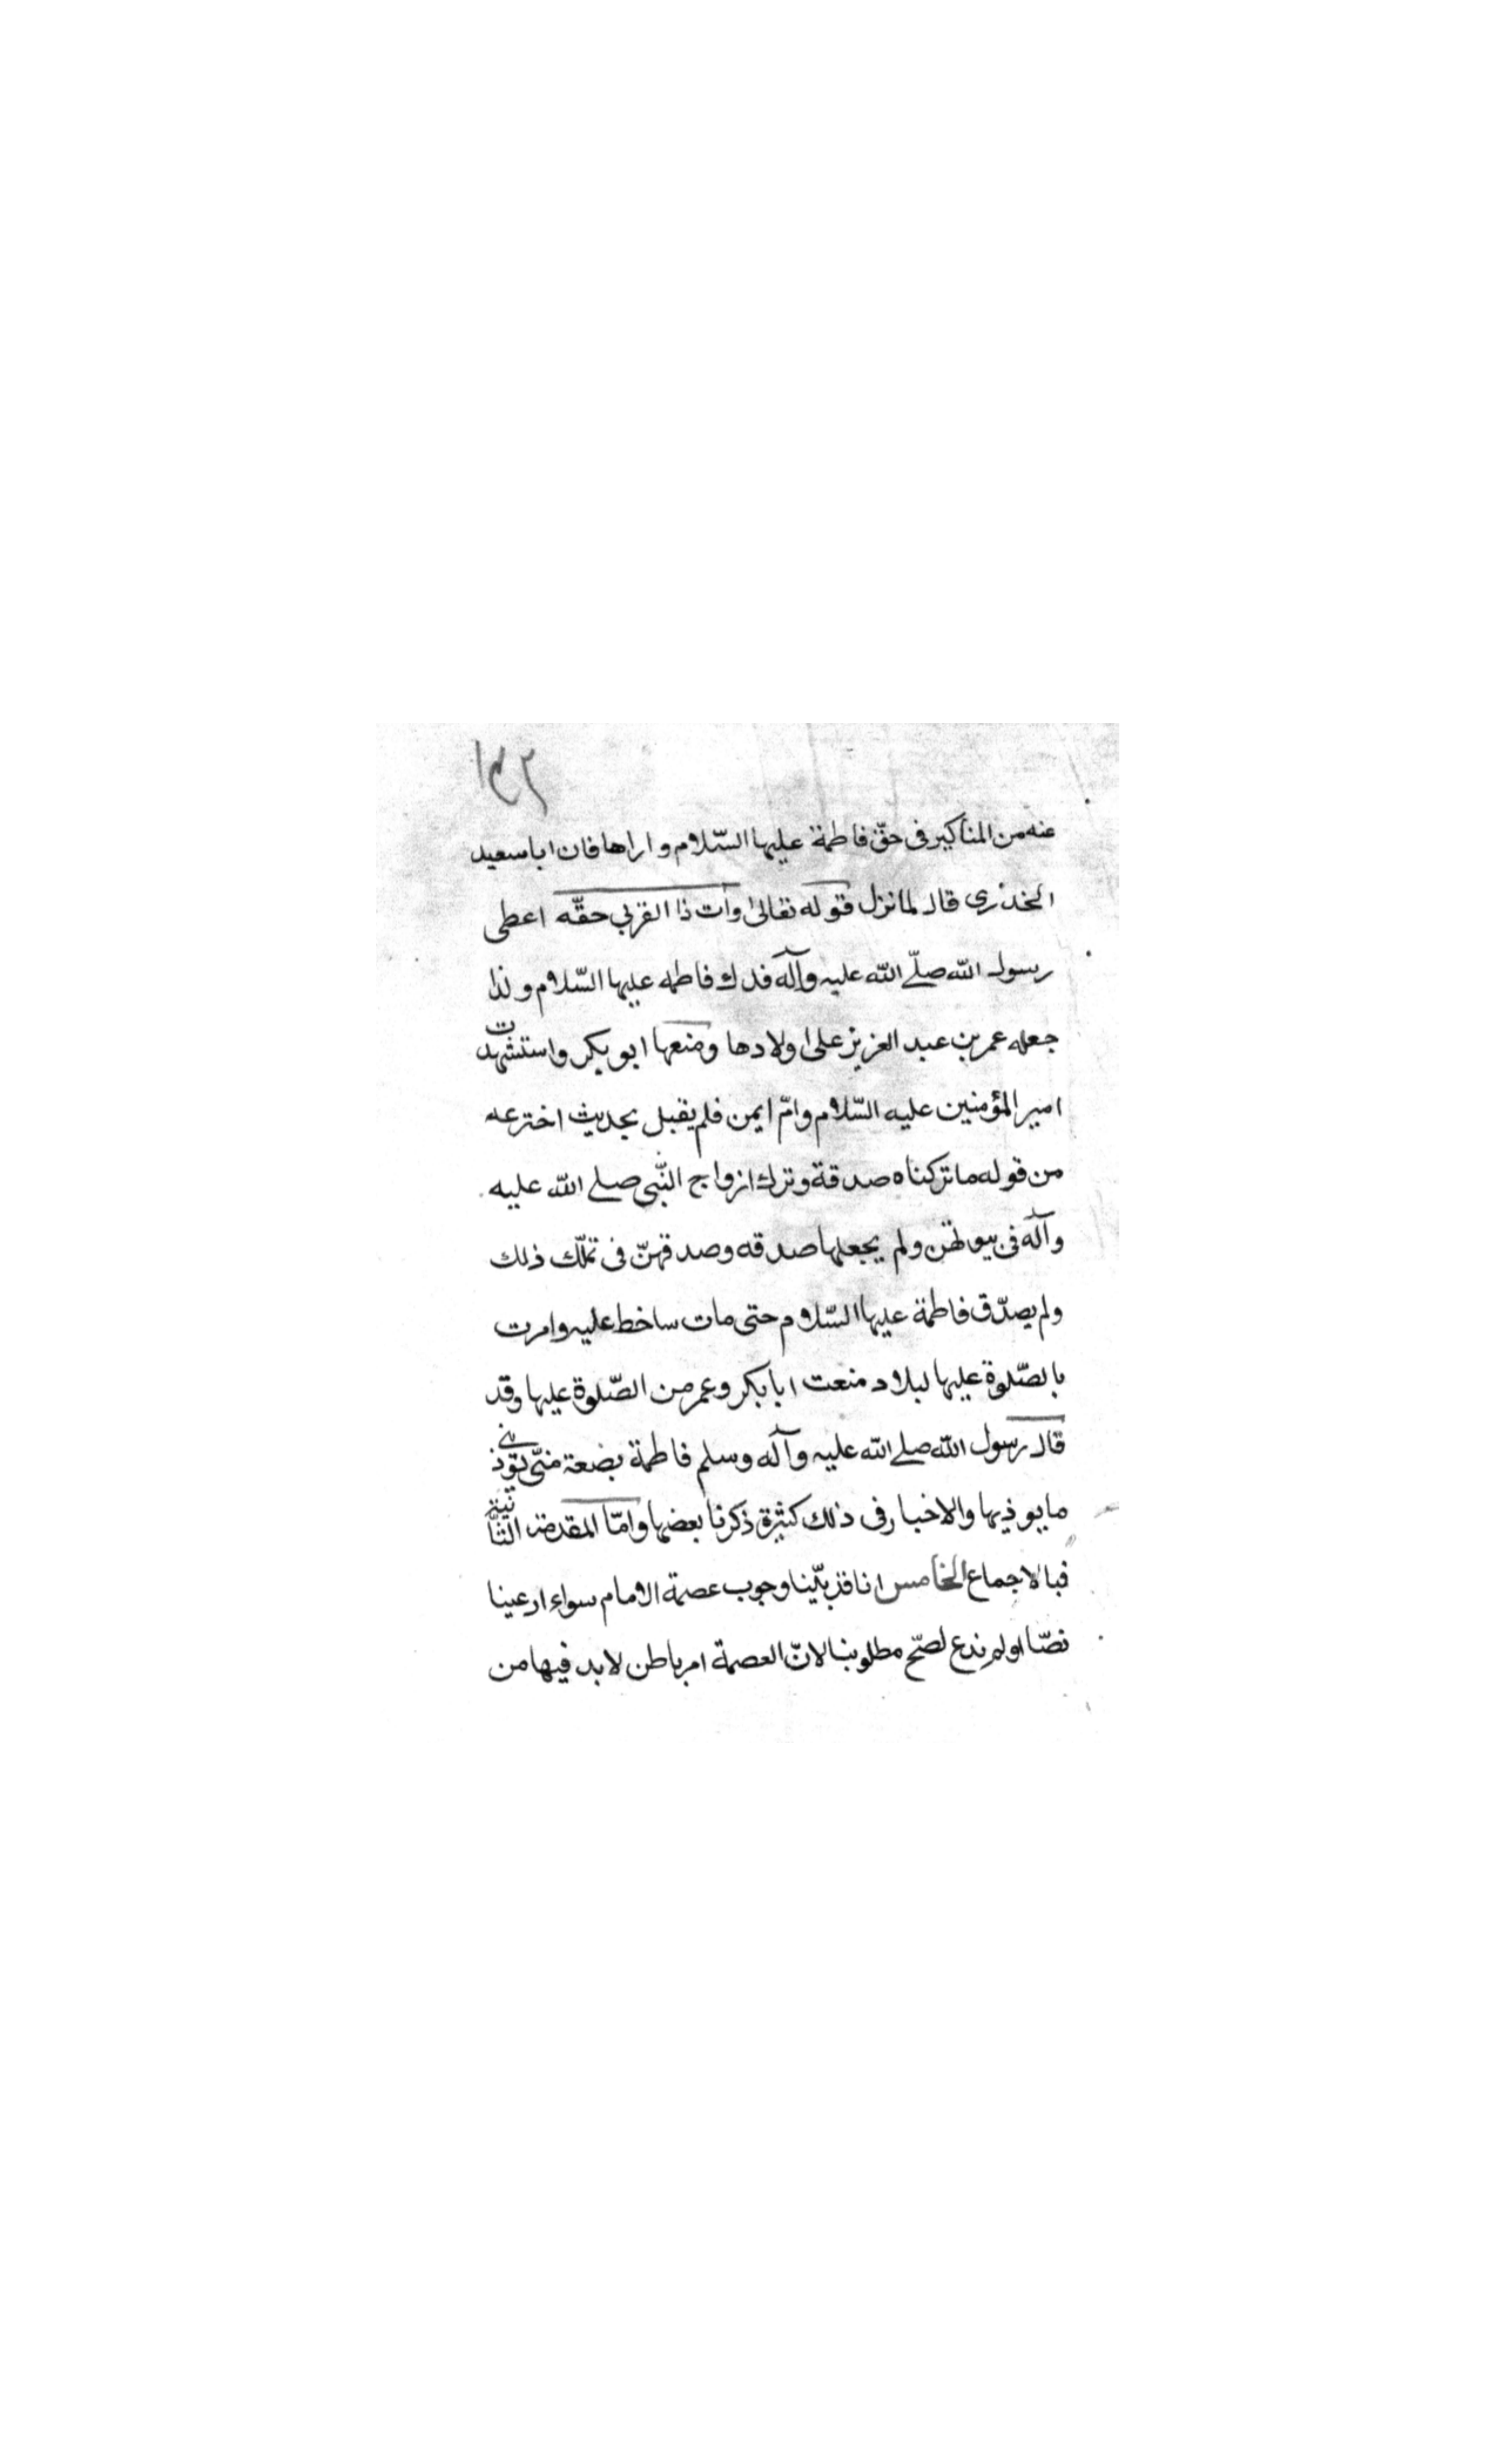 ١٣٢
عنه من المناكير فى حقّ فاطمة عليها السّلام و اراها فان ابا سعيد
الخذرى قال لما نزل قوله تعالىٰ وآت ذا القربى حقّه اعطى
رسول الله صلّى الله عليه وآله فدك فاطمه عليها السّلام و لذا
جعله عمر بن عبد العزيز على اولادها ومنعها ابو بكر واستشهدت
امير المؤمنين عليه السّلام وامّ ايمن فلم يقبل بحديث اخترعه
من قوله ما تركناه صدقة وترك ازواج النّبى صلى الله عليه
وآله فى بيوتهن ولم يجعلها صدقه وصدقهنّ فى تملّك ذلك
ولم يصدّق فاطمة عليها السّلام حتى مات ساخط عليه وامرت
بالصّلوة عليها ليلا د منعت ابا بكر وعمر من الصّلوة عليها وقد
قال رسول الله صلى الله عليه وآله وسلم فاطمة بضعة منّى توذنى
ما يوذيها والاخبار فى ذلك كثيرة ذكرنا بعضها وامّا المقدمة الثّانية
فبالاجماع الخامس انا قد بيّنا وجوب عصمة الامام سواء ادعينا
نصّا او لم ندع لصّح مطلوبنا لانّ العصمة امر باطن لابد فيها من